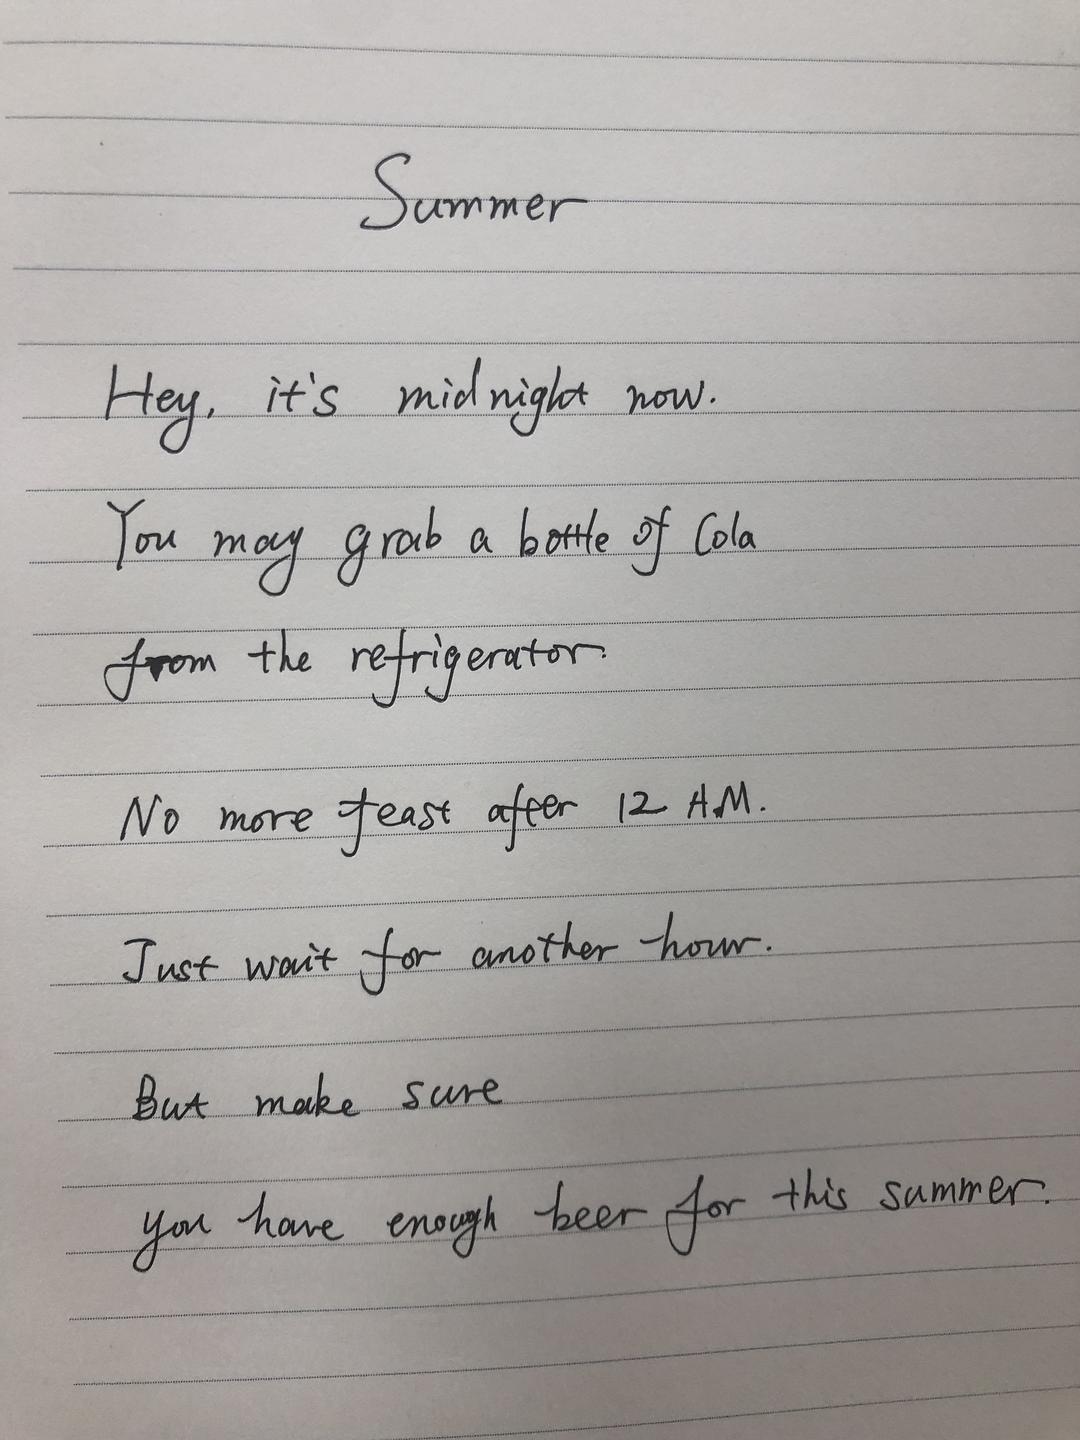 Summer
Hey, it's midnight now.
You may grab a bottle of Cola
from the refrigerator.
No more feast after 12 A.M.
Just wait for another hour.
But make sure
you have enough beer for this summer.